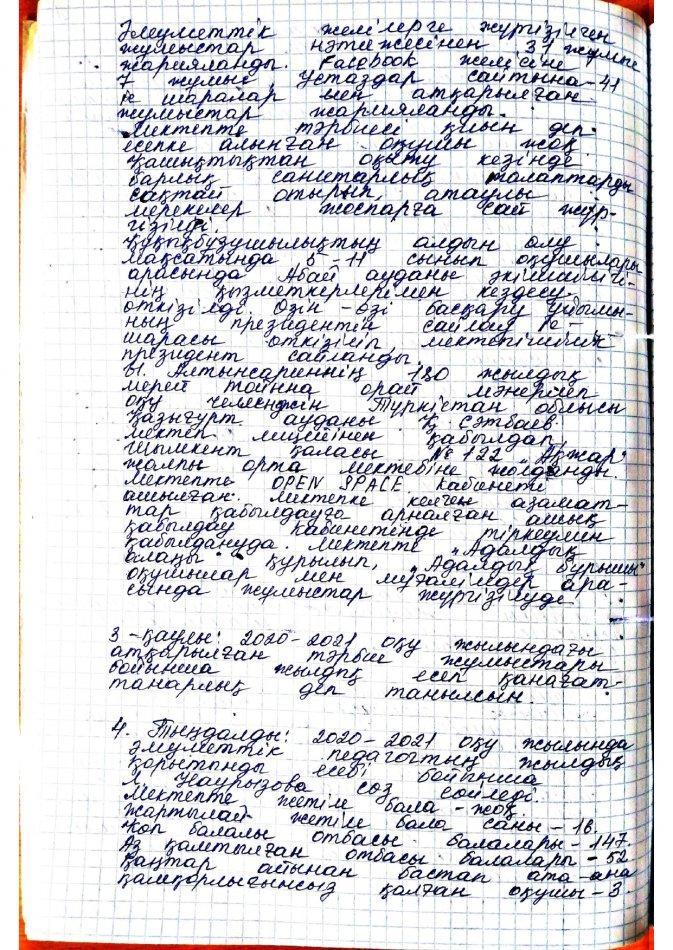 Әлеуметтік желілерге жүргізілген
жұмыстар нәтижесінен 31 жұмыс
жарияланды. Facebook желісіне
7 жұмыс Ұстаздар сайтына - 41
іс шаралар мен атқарылған
жұмыстар жарияланды.
Мектепте тәрбиесі қиын деп
есепке алынған оқушы жоқ
Қашықтықтан оқыту кезінде
барлық санитарлық талаптарды
сақтай отырып, атаулы
мерекелер жоспарға сай жүр-
гізілді.
Құқықбұзушылықтың алдын алу
мақсатында 5-11 сынып оқушылары
арасында Абай ауданы әкімшілігі-
нің қызметкерлерімен кездесу
өткізілді. Өзін-өзі басқару ұйымы-
ның президентін сайлау іс-
шарасы өткізіліп, мектепішілік
президент сайланды.
Ы. Алтынсариннің 180 жылдық
мерей тойына орай мәнерлеп
оқу челенджін Түркістан облысы
Қазығұрт ауданы Қ. Сәтбаев
мектеп лицейінен қабылдап,
Шымкент қаласы №122 "Аржар"
жалпы орта мектебіне жолданды.
Мектепте OPEN SPACE кабинеті
ашылған. Мектепке келген азамат-
тар қабылдауға арналған ашық
қабылдау кабинетінде тіркеумен
қабылдануда. Мектепте "Адалдық
алаңы" құрылып, "Адалдық бұрышы"
оқушылар мен мұғалімдер ара-
сында жұмыстар жүргізілуде.
3-қаулы: 2020-2021 оқу жылындағы
атқарылған тәрбие жұмыстары
бойынша жылдық есеп қанағат-
танарлық деп танылсын.
4. Тыңдалды: 2020-2021 оқу жылында
әлеуметтік педагогтың жылдық
қорытынды есебі бойынша
Л. Наурызова сөз сөйледі.
Мектепте жетім бала - жоқ
Жартылай жетім бала саны - 16.
Көп балалы отбасы балалары - 147.
Аз қамтылған отбасы балалары - 52
Қаңтар айынан бастап ата-ана
қамқорлығынсыз қалған оқушы - 3.